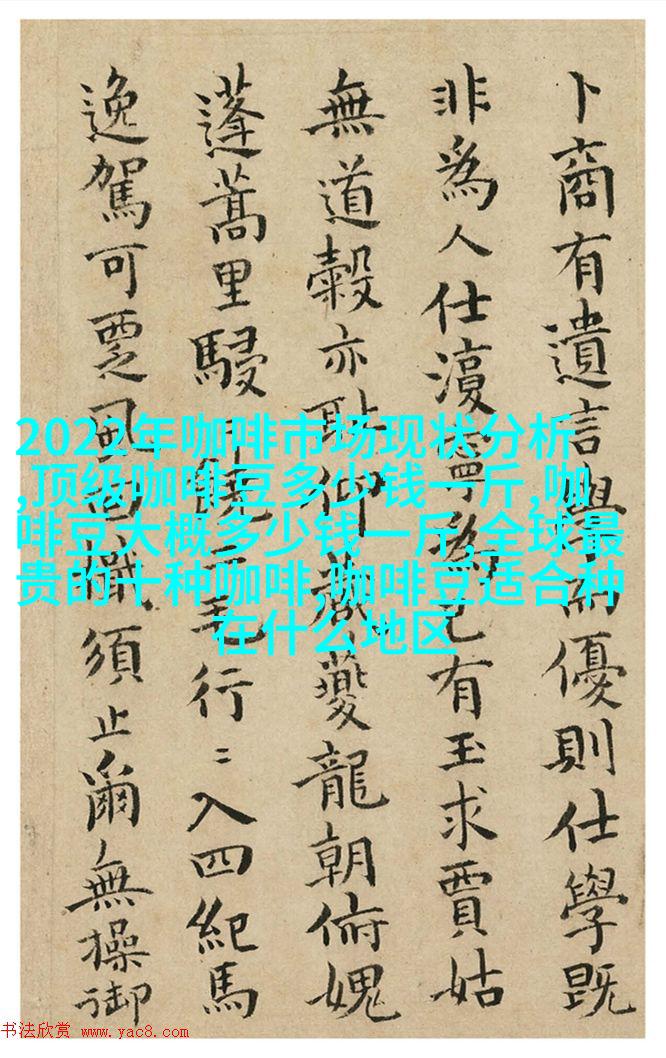 卜商有遺言學而優則仕學既
非為人仕復寧為己有玉求賈姑
無道穀亦恥仰夔龍朝俯媿
蓬蒿里駸毛行〻入四紀馬
逸駕可覂風須止爾無操御
2022年咖啡市场现状分析
,顶级咖啡豆多少钱一斤,咖
啡豆大概多少钱一斤,全球最
贵的十种咖啡,咖啡豆适合种
在什么地区
书法欣赏 www.yac8.com